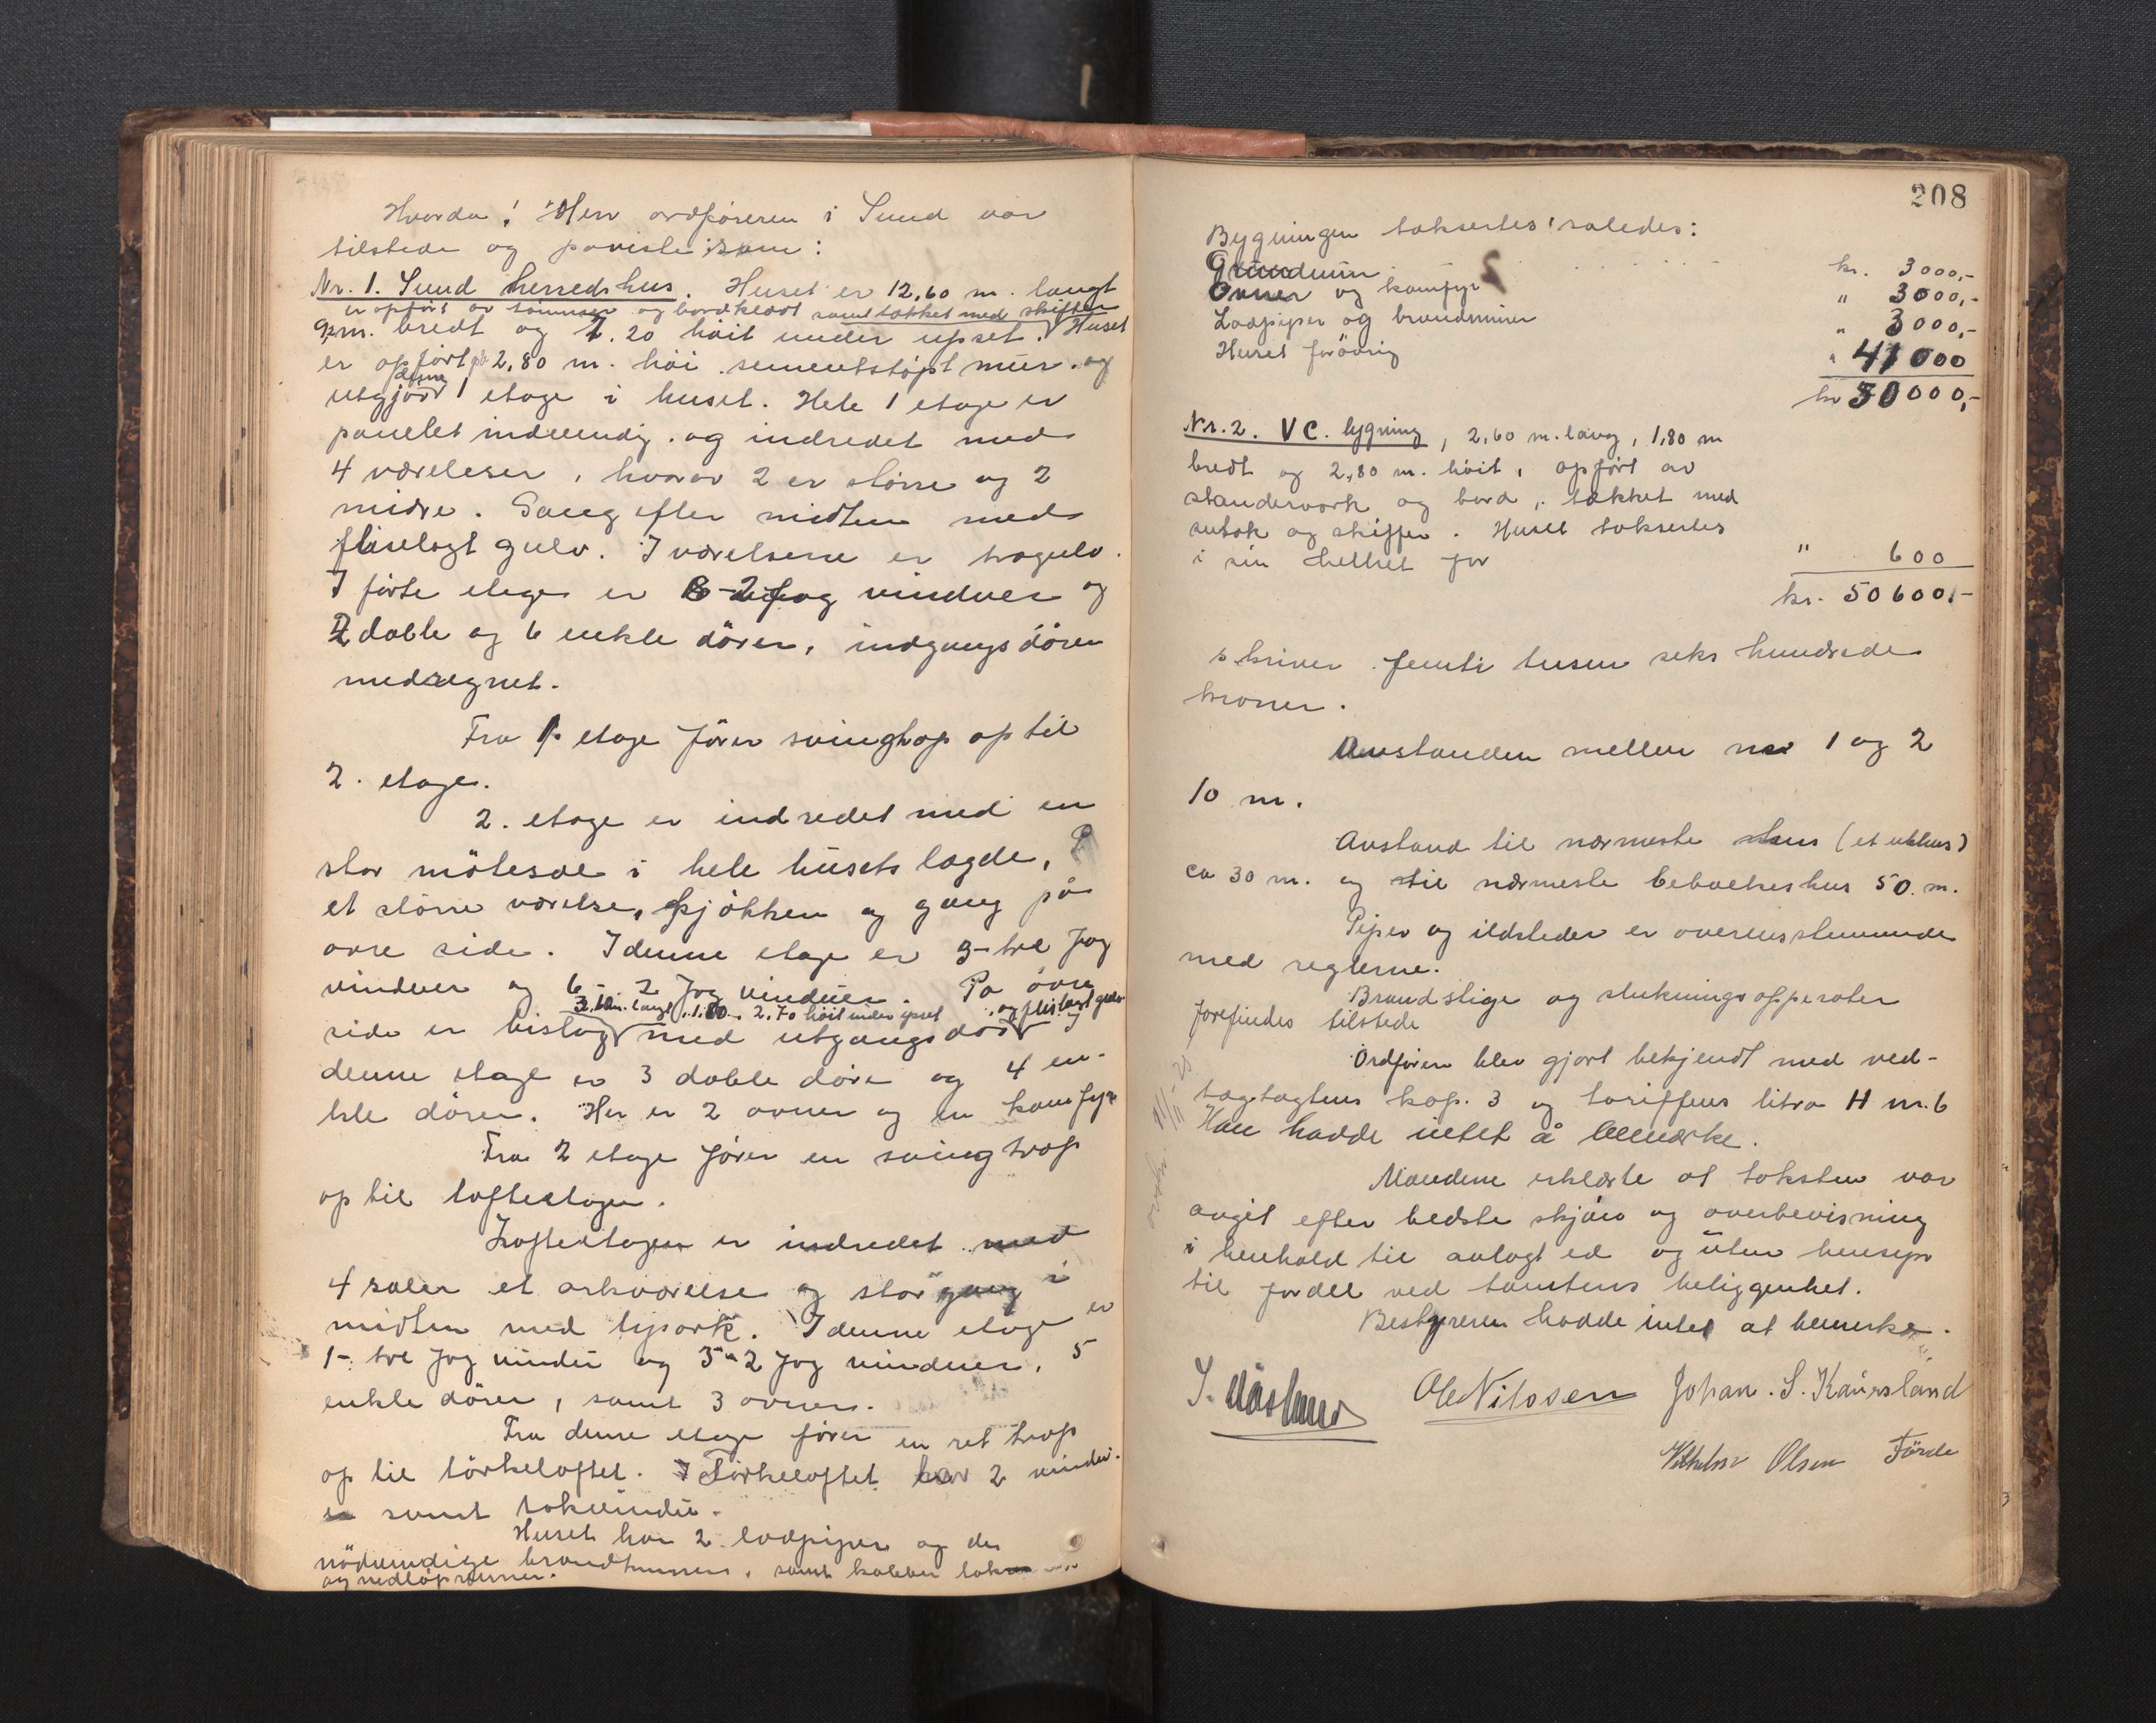 Hvorda! Herr ordføreren i Sund var
tilstede og paviste som:
Nr. 1. Sund herredshus. Huset er 12,60 m. langt
er opført av tømmer og bordklædt samt tækket med skiffer
9, m. bredt og 7.20 høit under upset. Huset
er opført på 2,80 m. høi sementstøpt mur. og
denne
utgjør 1 etage i huset. Hele 1 etage er
panelet indvendig. og indredet med
4 værelser, hvorav 2 er større og 2
midre. Gang efter midten med
fliselagt gulv. I værelserne er tragulv.
I førte etage er 8-2 fag vinduer og
2 doble og 6 enkle dører, indgangsdøren
medregnet.
Fra 1. etage fører svingtrap op til
2. etage.
2. etage er indredet med en
stor møtesal i hele husets lagde,
et større værelse, kjøkken og gang på
øvre side. I denne etage er 3-tre fag
vinduer og 6-2 fag vinduer. Pa øvre
3,60m. langt, 1.80, 2,70 høit under upset, og fliselagt gulv
side er bislag med utgangsdør I
denne etage er 3 doble døre og 4 en-
kle dører. Her er 2 ovner og en komfyr
Fra 2 etage fører en svingtrap
op til loftsetagen.
Loftsetagen er indredet med
4 saler et arkværelse og stor gang i
midten med lysark. I denne etage er
1-. tre fag vindu og 5-2 fag vinduer. 5
enkle dører, samt 3 ovner.
Fra denne etage fører en ret trap
op til tørkeloftet. Tørkeloftet har 2 vindu-
er samt takvindu.
Huset har 2 lodpiper og de
nødvendige brandmurer, samt kobber tak
og nedløpsrenner.
208
Bygningen taksertes saledes:
Grundmur kr. 3000,-
Ovner og komfyr " 3000,-
Lodpiper og brandmurer " 3000,-
Huset forøvrig " 41000
kr 50000,-
Nr. 2. VC. bygning, 2,60 m. lang, 1,80 m
bredt og 2,80 m. høit, opført av
standerverk og bord, tækket med
sutak og skiffer. Huset taksertes
i sin helhet for " 600
kr. 50600,-
skriver femti tusen seks hundrede
kroner.
Avstanden mellem nr 1 og 2
10 m.
Avstand til nærmeste hus (et uthus)
ca 30 m. og til nærmeste beboelseshus 50. m.
Piper og ildsteder er overensstemmende
med reglerne.
Brandstige og slukningsapperater
forefindes tilstede
Ordføren blev gjort bekjendt med ved-
tagtagtens kap. 3 og tariffens litra H nr. 6
Han hadde intet å bemærke.
Mændene erklærte at taksten var
avgit efter bedste skjøn og overbevisning
i henhold til avlagt ed og uten hensyn
til fordel ved tomtens beliggenhet.
Bestyreren hadde intet at bemerke.
Ole Nilssen Johan. S. Kausland
Vilhelm Olsen Förde